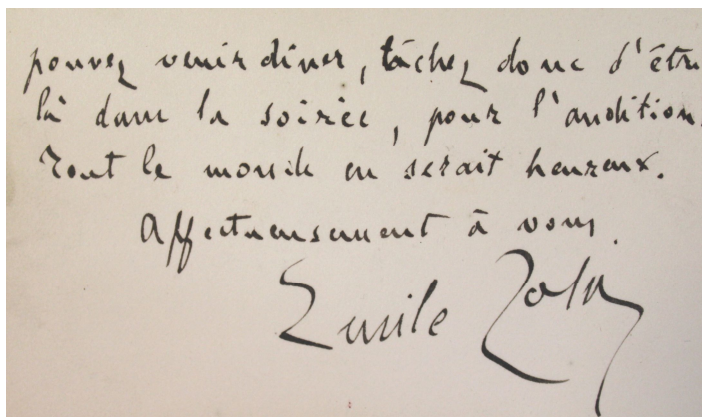 pouvez venir dîner, tâchez donc d'être
là dans la soirée, pour l'audition.
Tout le monde en serait heureux.
Affectueusement à vous.
Emile Zola